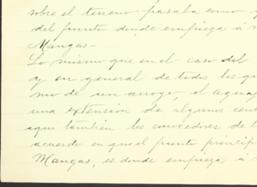 sobre el terreno pasaba como
del punto donde empieza á
Mangas.-
Lo mismo que en el caso del
y en general de todos los que
mo del un arroyo, el agua
una extensión de algunos cen
aqui tambien los conocedores de
acuerdo en qual punto princip
Mangas, es donde empieza á